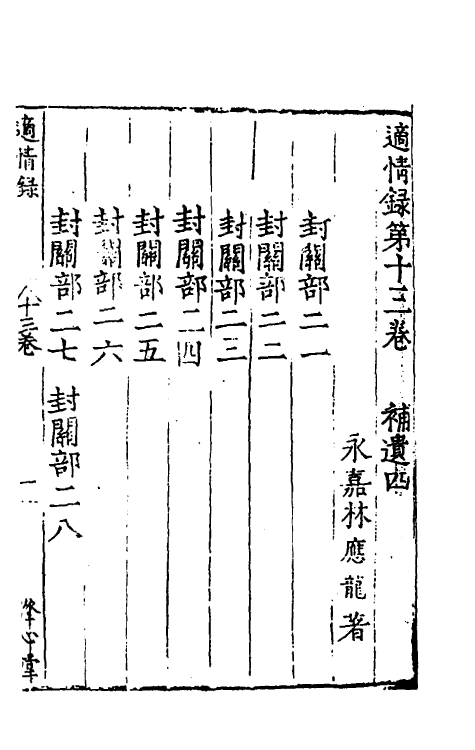 適情録第十三卷 補遺四
永嘉林應龍著
封關部二一
封關部二二
封關部二三
封關部二四
封關部二五
封關部二六
封關部二七 封關部二八
適情録 十三卷 一